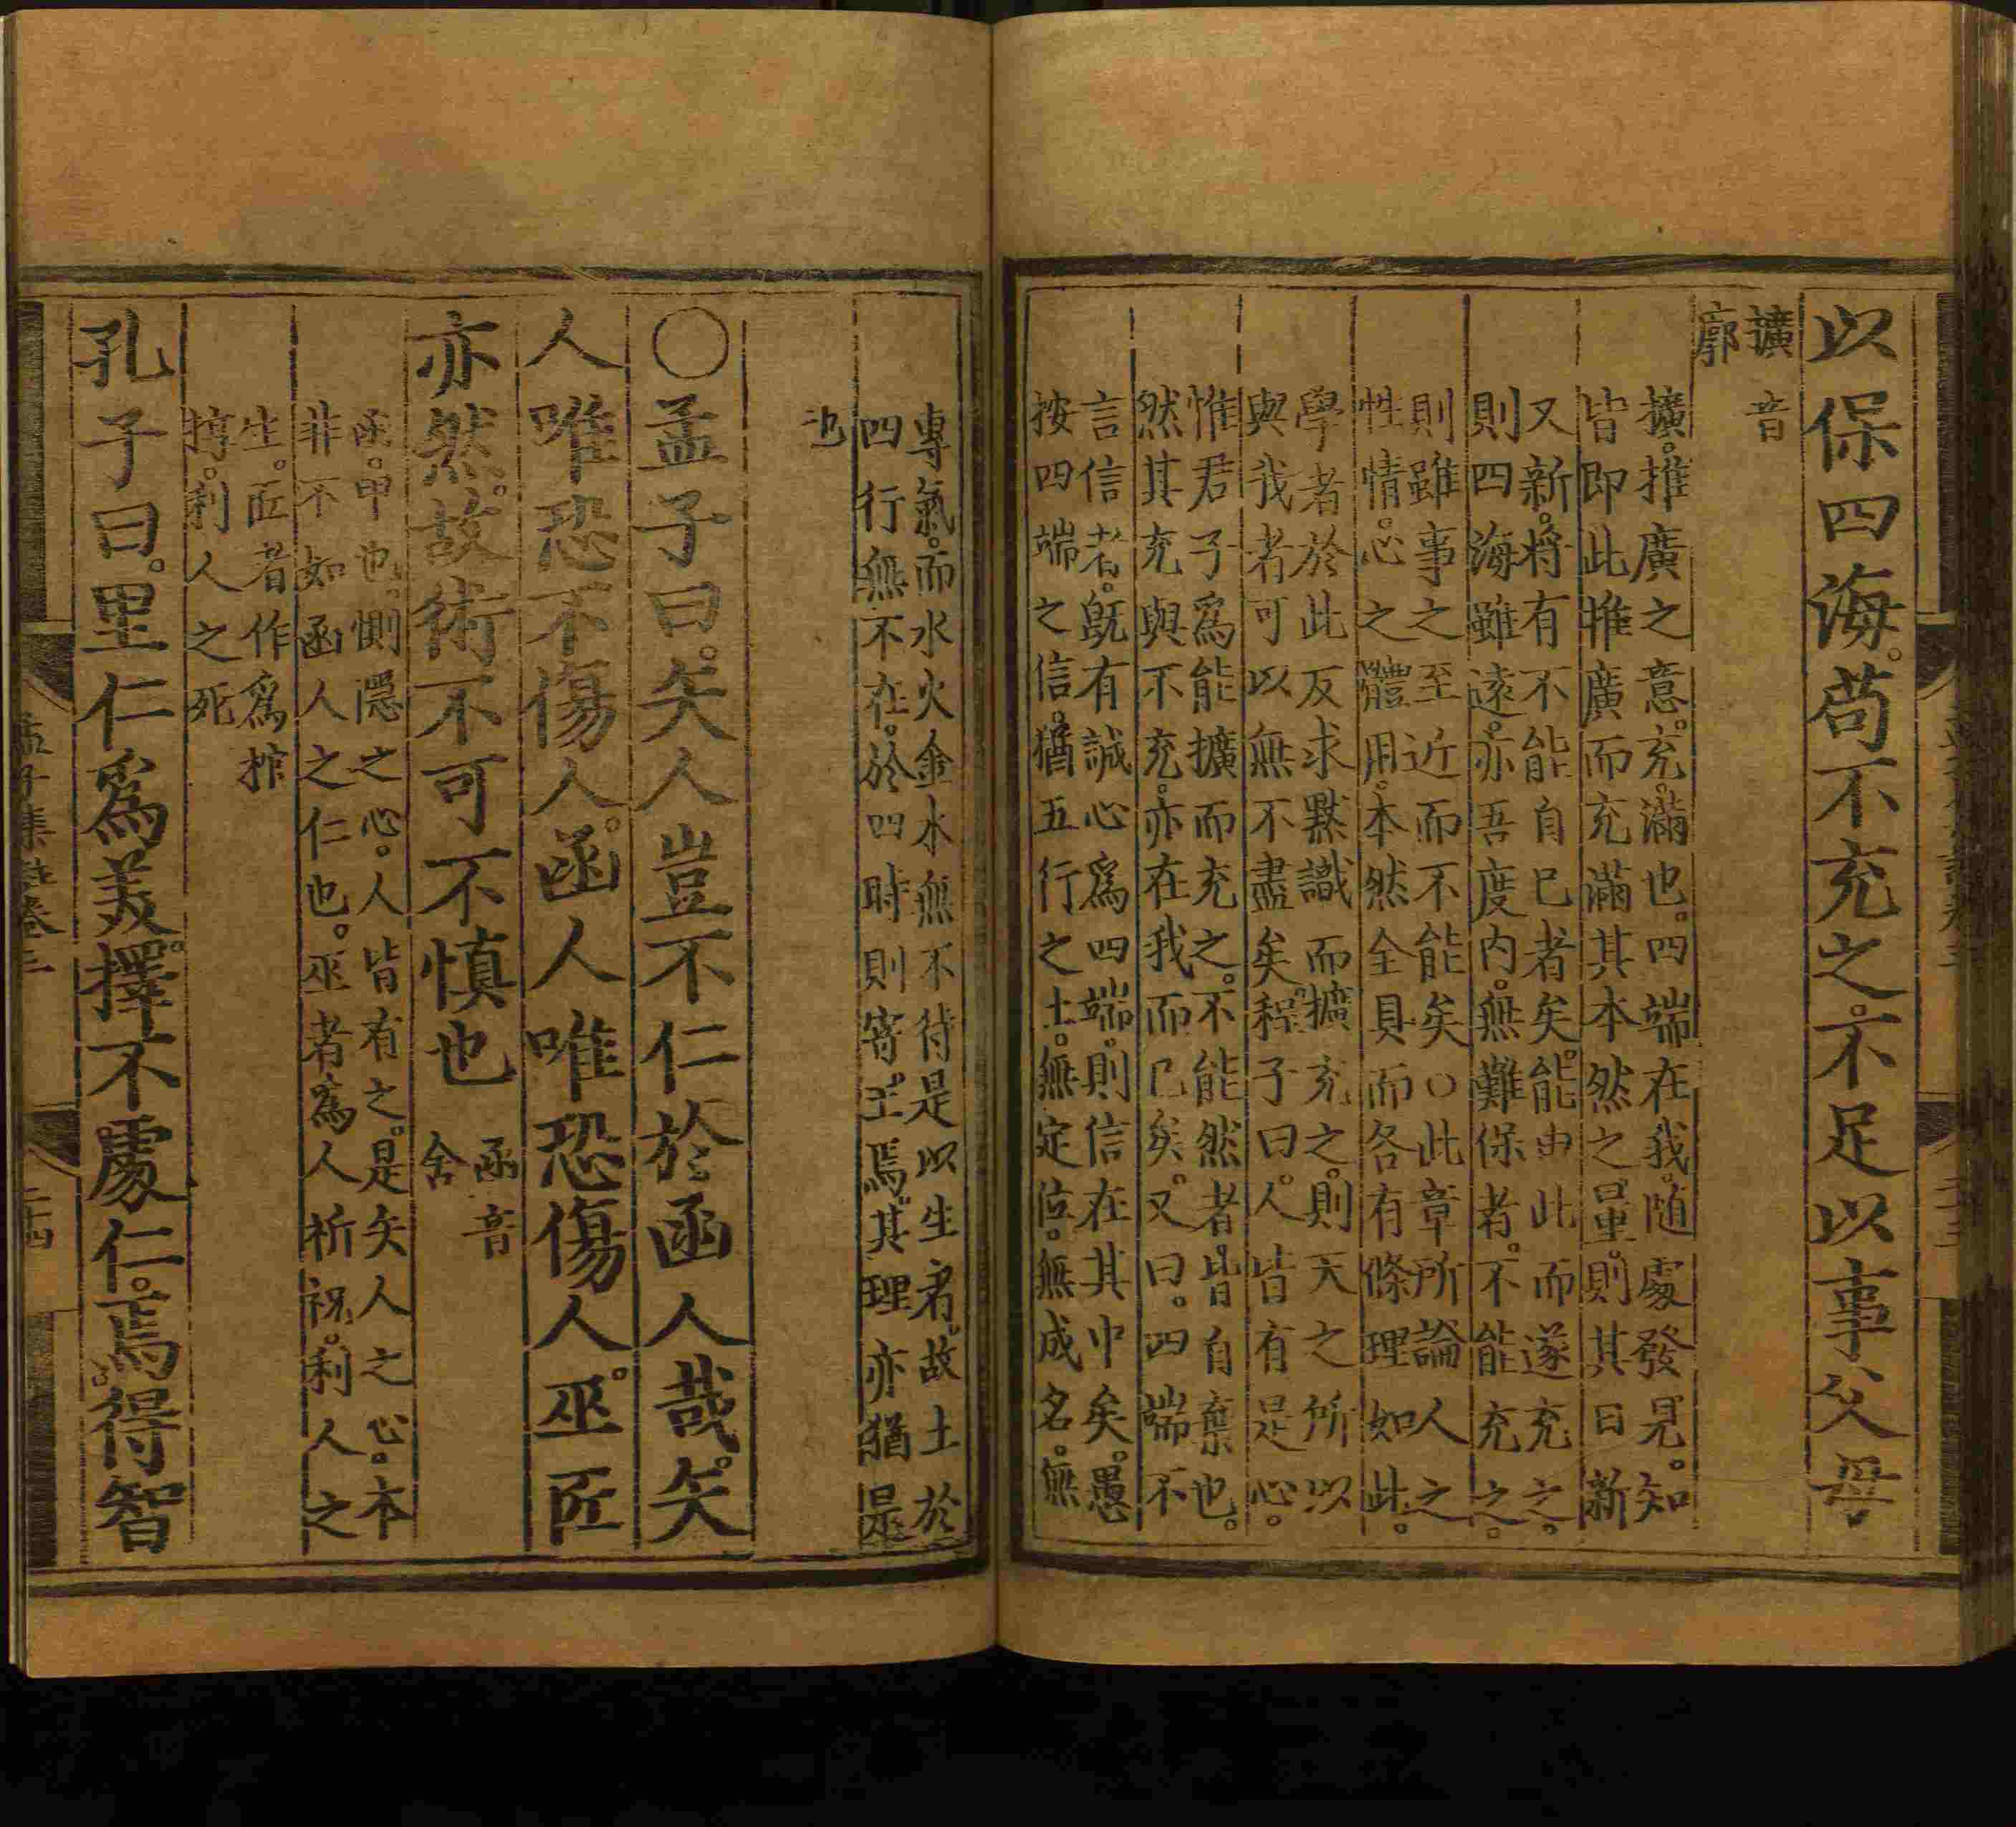 以保四海。苟不充之。不足以事父母
擴音
廓
擴。推廣之意。充。滿也。四端在我。随處發見。知
皆即此推廣而充滿其本然之量。則其日新
又新。将有不能自已者矣。能由此而遂充之。
則四海雖遠。亦吾度内。無難保者。不能充之。
則雖事之至近而不能矣○此章所論人之
性情。心之體用。本然全具而各有條理如此。
學者於此反求默識而擴充之。則天之所以
與我者可以無不盡矣程子曰。人皆有是心。
惟君子爲能擴而充之。不能然者。皆自棄也。
然其充與不充。亦在我而已矣。又曰。四端不
言信者。旣有誠心爲四端。則信在其中矣。愚
按四端之信。猶五行之土。無定位。無成名。無
專氣。而水火金水無不待是以生者。故土於
四行無不在。於四時則寄王焉。其理亦猶是
也
○孟子曰。矢人豈不仁於函人哉。矢
人唯恐不傷人。函人唯恐傷人。巫匠
亦然。故術不可不慎也
函音
舍
函。甲也。惻隱之心。人皆有之。是矢人之心。本
非不如函人之仁也。巫者爲人祈祝。利人之
生。匠者作爲棺
椁。利人之死
孔子曰。里仁爲美。擇不處仁。焉得智
孟子集註卷三
二十四